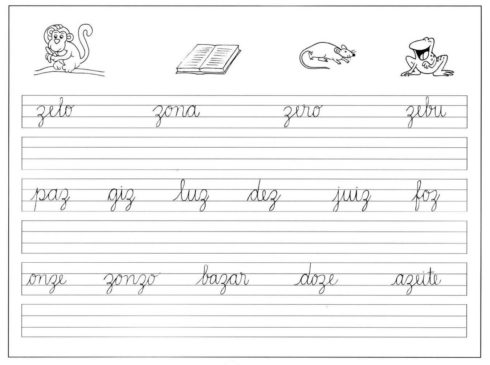 zelo zona zero zebu
paz giz luz dez juiz foz
onze zonzo bazar doze azeite